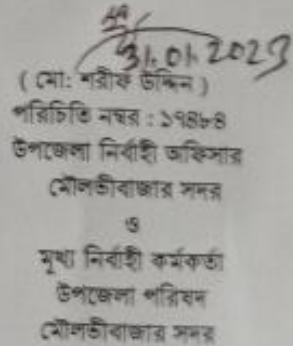 31.01.2023
( মো: শরীফ উদ্দিন )
পরিচিতি নম্বর : ১৭৪৮৪
উপজেলা নির্বাহী অফিসার
মৌলভীবাজার সদর
ও
মূখ্য নির্বাহী কর্মকর্তা
উপজেলা পরিষদ
মৌলভীবাজার সদর